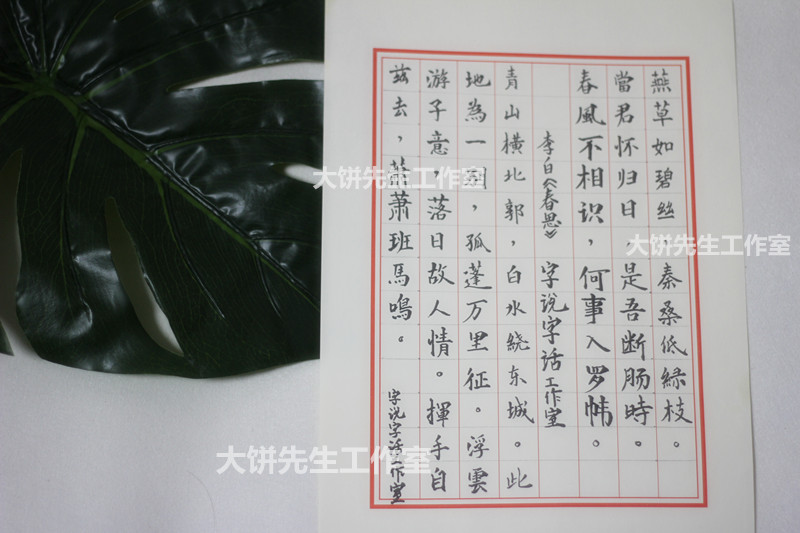 燕草如碧丝，秦桑低緑枝。
當君怀归日，是吾断肠時。
春風不相识，何事入罗帏。
李白《春思》 字说字话工作室
青山横北郭，白水绕东城。此
地為一别，孤蓬万里征。浮雲
游子意，落日故人情。揮手自
兹去，萧萧班馬鳴。
字说字话工作室
大饼先生工作室
大饼先生工作室
大饼先生工作室